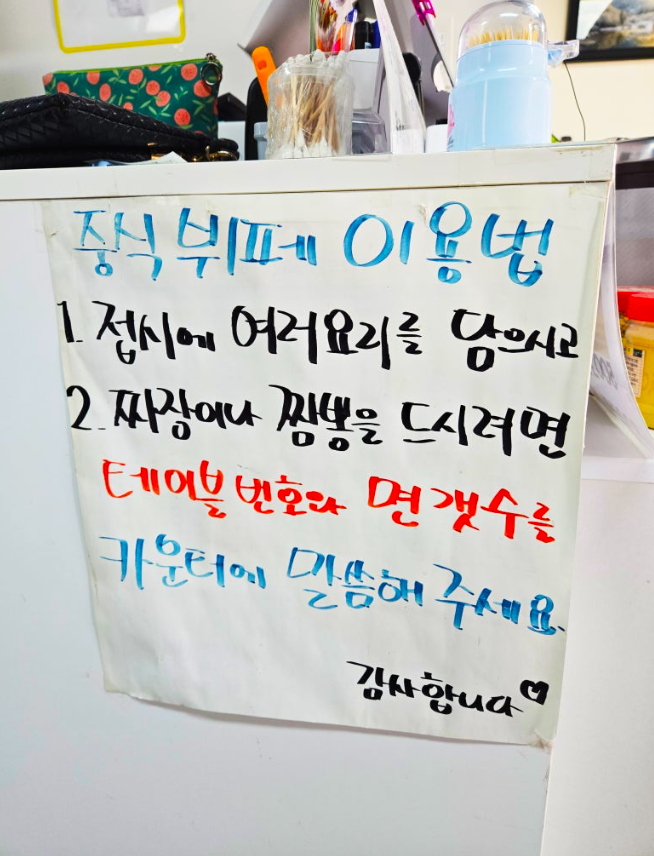 중식뷔페 이용법
1. 접시에 여러요리를 담으시고
2. 짜장이나 짬뽕을 드시려면
테이블번호와 면갯수를
카운터에 말씀해 주세요.
감사합니다♡